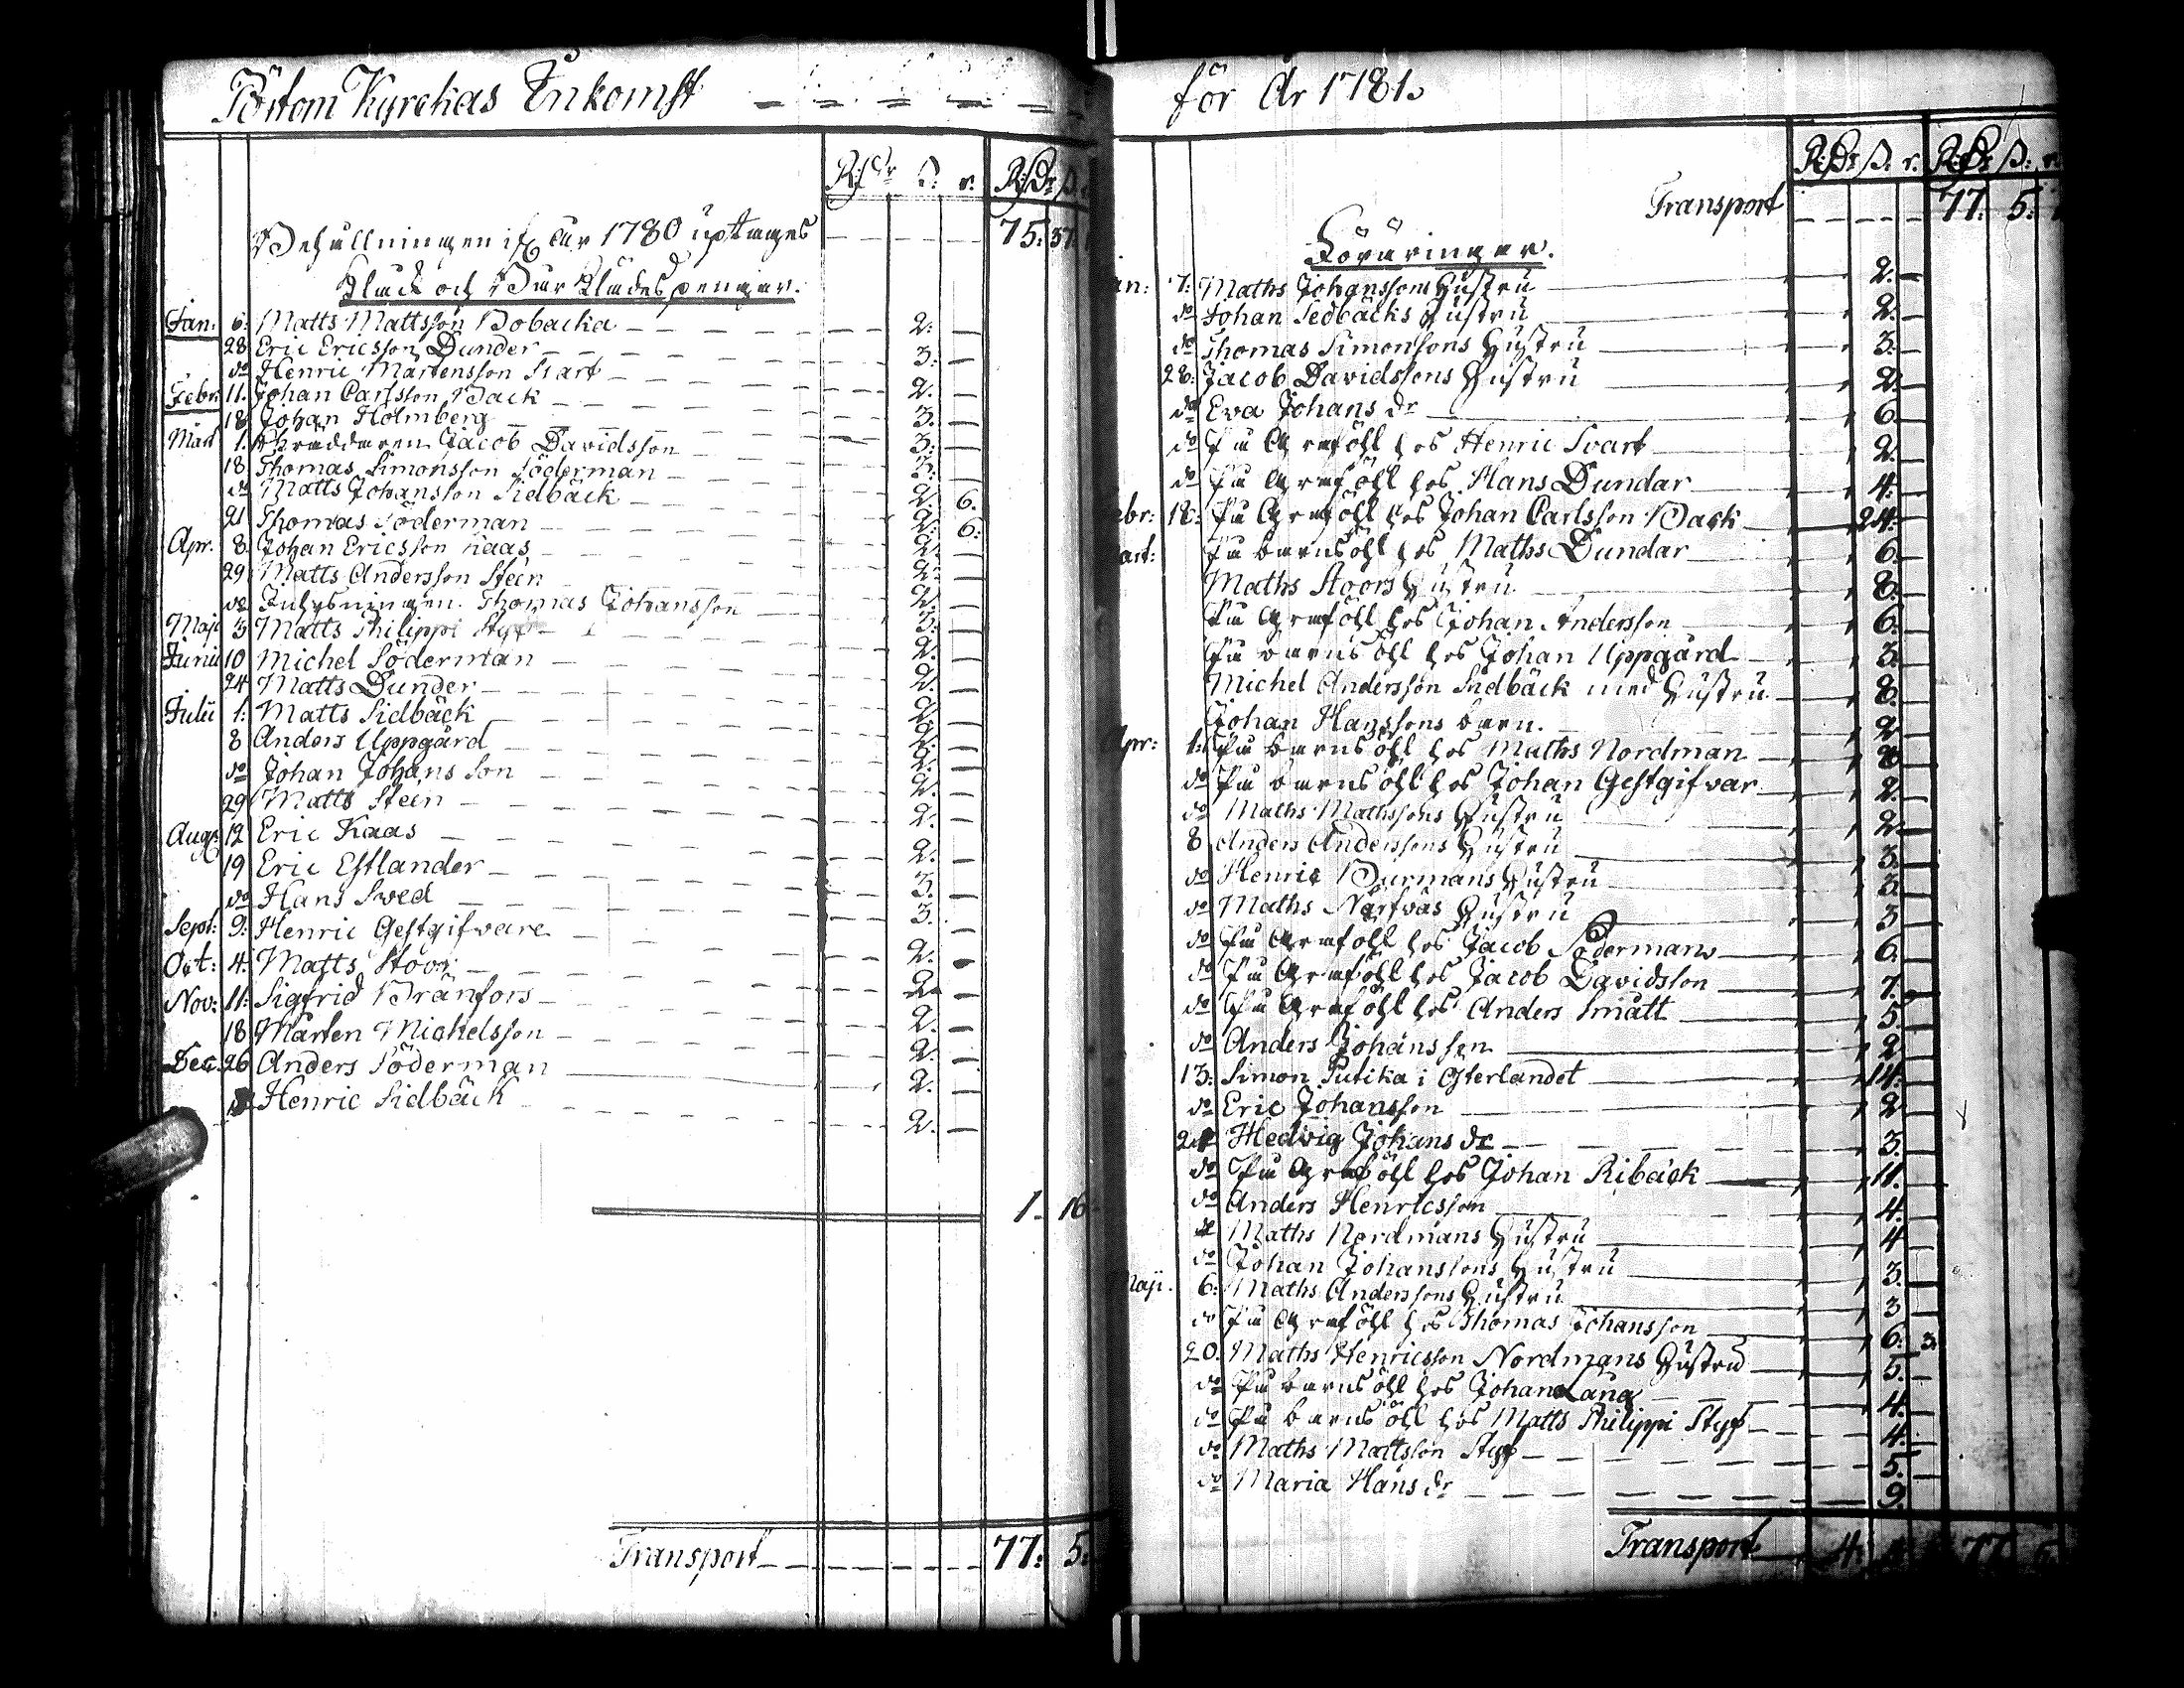 Pörtom Kyrckas Inkomst
R:sdr ß: r. R:sdr ß:
Behållningen if. år 1780 uptages 75: 37
Klock och Bår Klädes penningar.
Jan: 6: Matts Mattsson Bobacka 2: —
28 Eric Ericsson Dunder 3: —
do Henric Mårtensson Svart
Febr: 11. Johan Carlsson Back 2. —
18 Johan Holmberg 3. —
Mart 1. Skräddaren Jacob Davidsson 3: —
18 Thomas Simonsson Söderman 3. —
do Matts Johansson Sidbäck 2. 6.
21 Thomas Söderman 2: 6:
Apr. 8. Johan Ericsson Kaas 2. —
29 Matts Andersson Steen 2. —
do Inhysningen Thomas Johansson 2. —
Maji 3 Matts Philippi Styf 3. —
Junii 10 Michel Söderman 2. —
24 Matts Dunder 2. —
Julii 1: Matts Sidbäck 2. —
8 Anders Uppgård 2. —
do Johan Johansson 2. —
29 Matts Steen 2. —
Aug: 12 Eric Kaas 2. —
19 Eric Estlander 2. —
do Hans Sved 3. —
Sept: 9: Henric Gestgifvare 3. —
Oct: 4. Matts Stoor 2. —
Nov: 11: Sigfrid Bränfors 2. —
18 Mårten Michelsson 2. —
Dec. 26 Anders Söderman 2. —
Henric Sidbäck 2. —
1. 16
Transport 77: 5:
för År 1781.
R:sdr ß: r. R:sdr ß: r.
Transport 77: 5:
Föräringar.
7: Maths Johanssons Hustru 2. —
do Johan Sedbäcks Hustru 2. —
do Thomas Simonsons Hustru 3. —
28: Jacob Davidssons Hustru 2. —
do Eva Johans dr 6. —
do På Grafföhl hos Henric Svart 2. —
do På Grafföhl hos Hans Dundar 4. —
18: På Grafföhl hos Johan Carlsson Back 24. —
På barnsöhl hos Maths Dundar 6. —
Maths Stoors Hustru 8. —
På Grafföhl hos Johan Andersson 6. —
På barnsöhl hos Johan Uppgård 3. —
Michel Andersson Sidbäck med Hustru 8. —
Johan Hanssons barn. 2 —
1: På barnsöhl hos Maths Nordman 8 —
do På barnsöhl hos Johan Gestgifvar 2. —
do Maths Mathssons Hustru 2 —
8 Anders Anderssons Hustru 3. —
do Henric Burmans Hustru 3. —
do Maths Närfvas Hustru 3 —
do På Grafföhl hos Jacob Södermans 6. —
do På Grafföhl hos Jacob Davidsson 7. —
do På Grafföhl hos Anders Smått 5. —
do Anders Johansson 2 —
13: Simon Putika i Österlandet 14. —
do Eric Johansson 2 —
Hedvig Johans dr 3. —
do På Grafföhl hos Johan Ribäck 11. —
do Anders Henricsson 4. —
do Maths Nordmans Hustru 4 —
do Johan Johanssons Hustru 3. —
Maji. 6: Maths Anderssons Hustru 3 —
do På Grafföhl hos Thomas Johansson 6: 3.
20. Maths Henricsson Nordmans Hustru 5. —
do På barnsöhl hos Johan Lång 4. —
do På barnsöhl hos Matts Philippi Styf 4. —
do Maths Mattsson Styf 5. —
do Maria Hans dr 9
Transport 4: 77